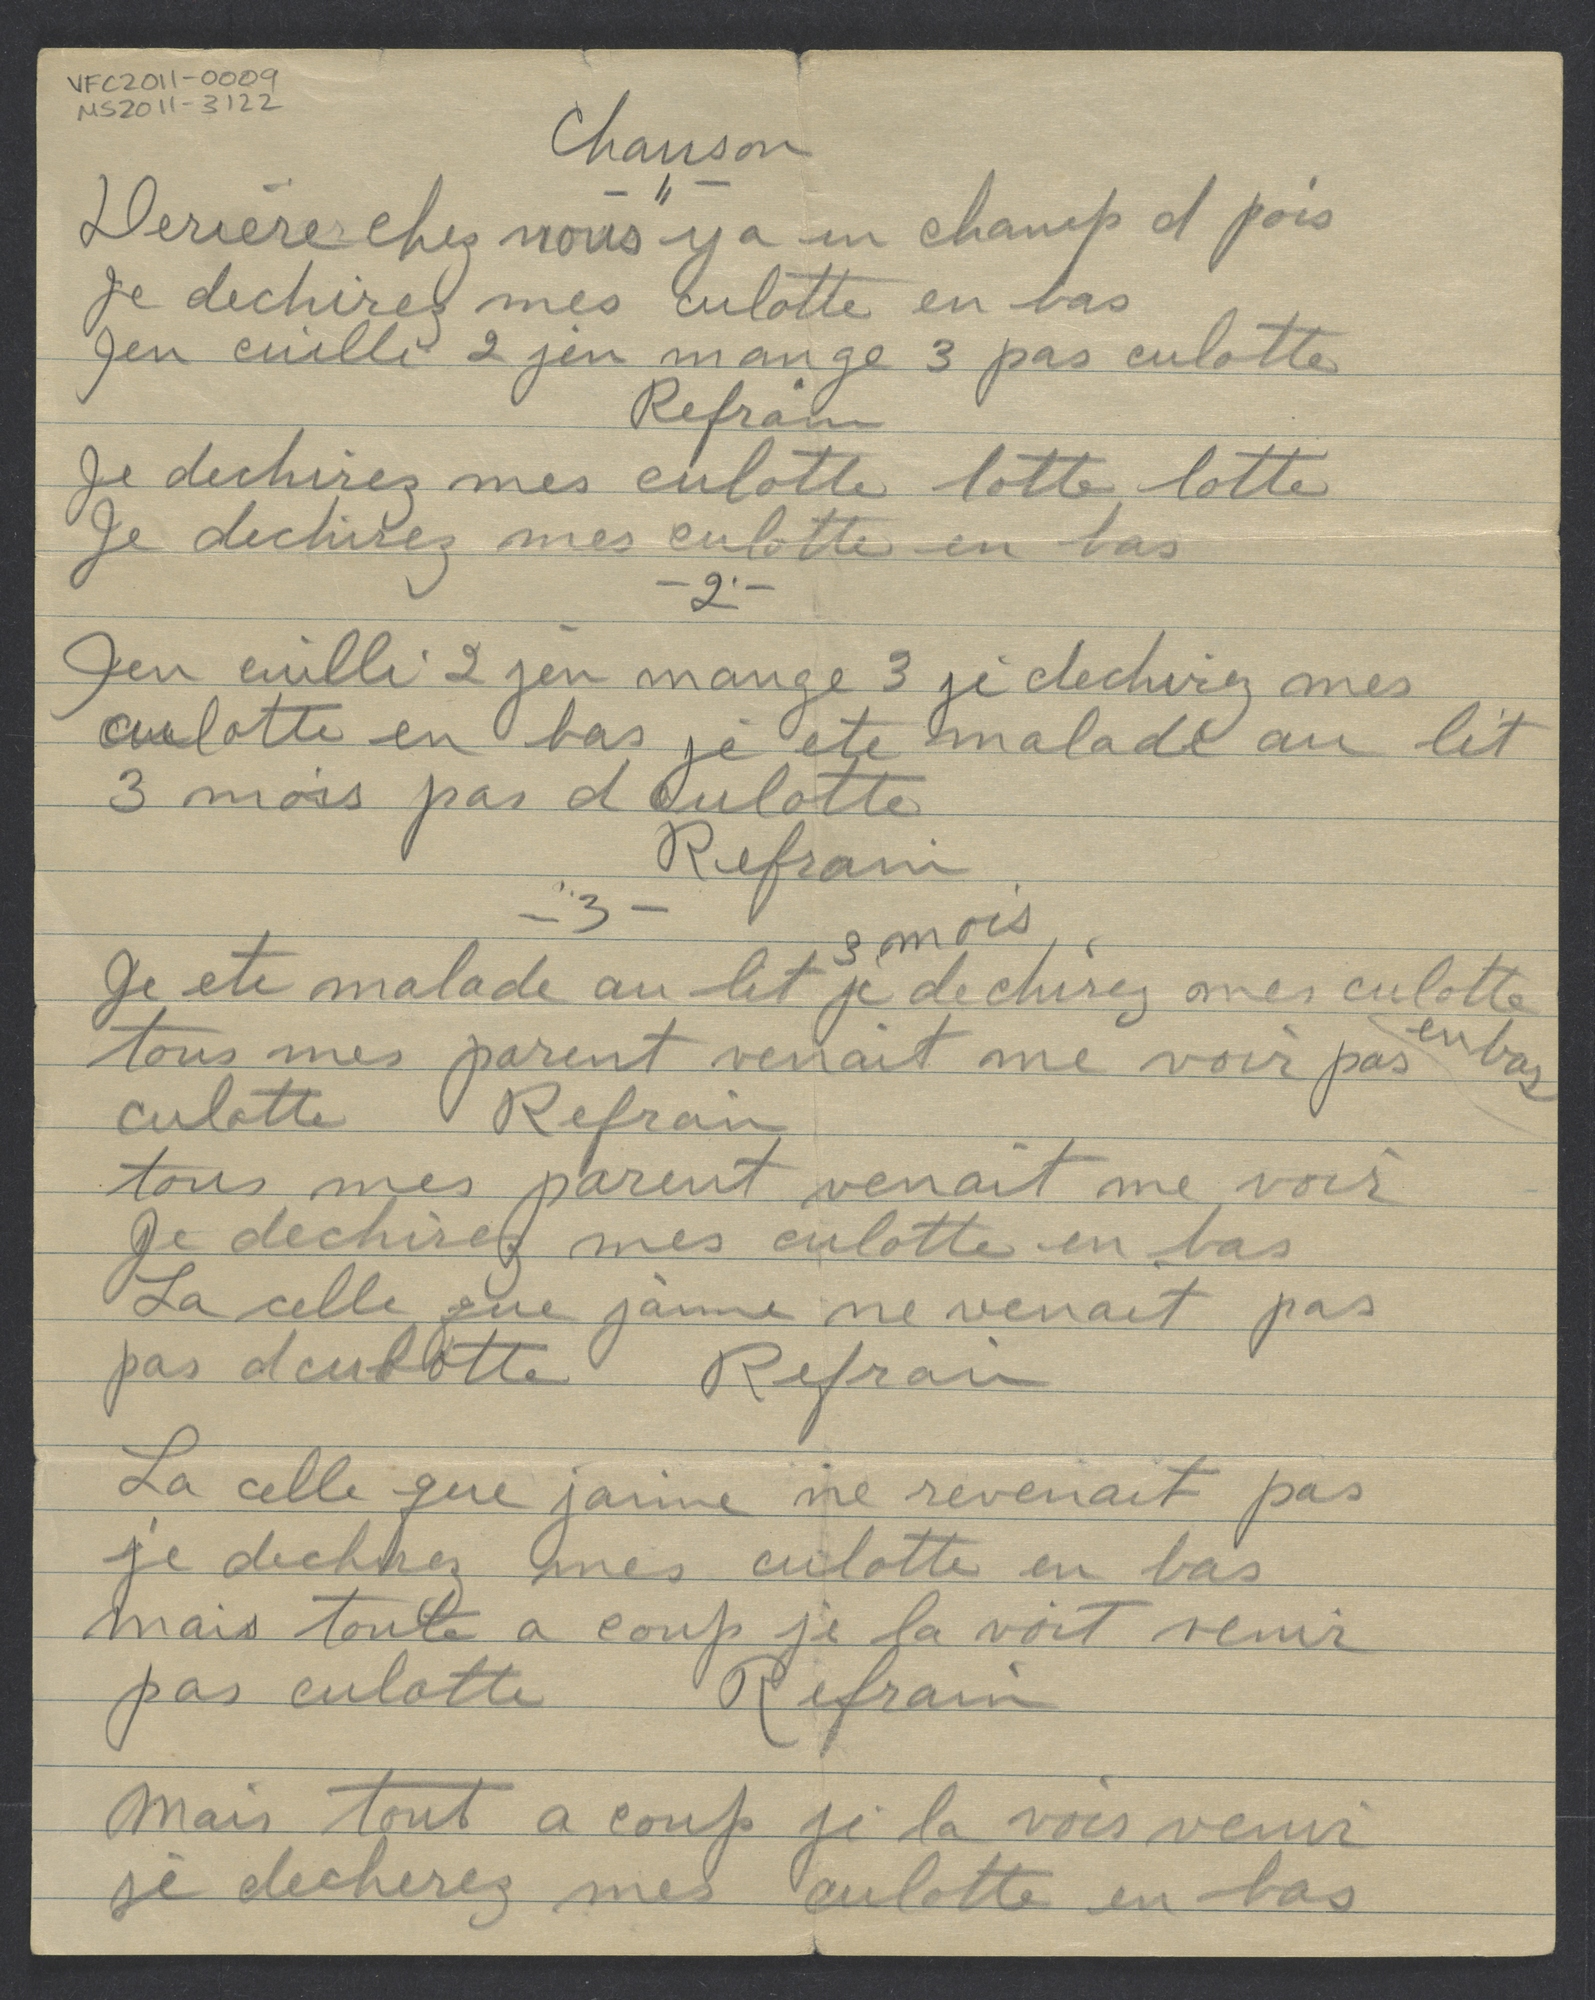 VFC2011-0009
MS2011-3122
Chanson
- " -
Deriere chez nous ya un champ d pois
Je dechirez mes culotte en bas
Jen cuilli 2 jen mange 3 pas culotte
Refrain
Je dechirez mes culotte lotte lotte
Je dechirez mes culotte en bas
- 2 -
Jen cuilli 2 jen mange 3 je dechirez mes
culotte en bas je ete malade au lit
3 mois pas d culotte
Refrain
- 3 -
3 mois
Je ete malade au lit je dechirez mes culotte
en bas
tous mes parent venait me voir pas
culotte Refrain
tous mes parent venait me voir
Je dechirez mes culotte en bas
La celle que jaime ne venait pas
pas d culotte Refrain
La celle que jaime ne revenait pas
je dechirez mes culotte en bas
mais toute a coup je la voit venir
pas culotte Refrain
Mais tout a coup je la vois venir
je decherez mes culotte en bas